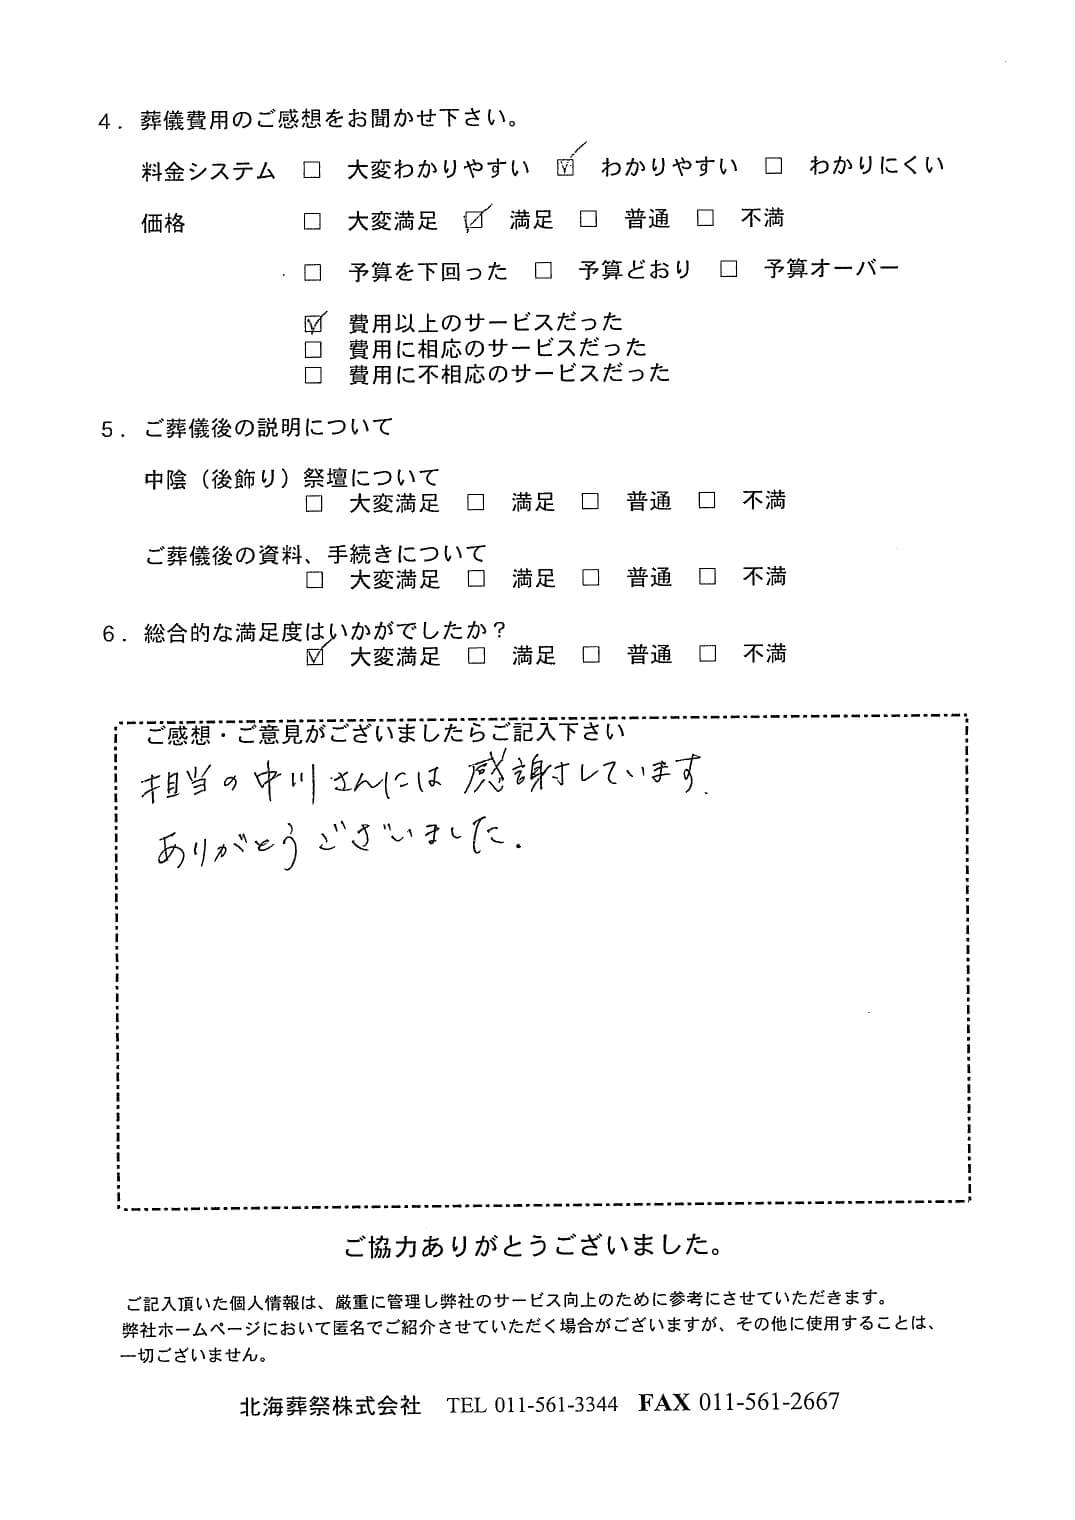 4．葬儀費用のご感想をお聞かせ下さい。
料金システム □ 大変わかりやすい ☑ わかりやすい □ わかりにくい
価格 □ 大変満足 ☑ 満足 □ 普通 □ 不満
□ 予算を下回った □ 予算どおり □ 予算オーバー
☑ 費用以上のサービスだった
□ 費用に相応のサービスだった
□ 費用に不相応のサービスだった
5．ご葬儀後の説明について
中陰（後飾り）祭壇について
□ 大変満足 □ 満足 □ 普通 □ 不満
ご葬儀後の資料、手続きについて
□ 大変満足 □ 満足 □ 普通 □ 不満
6．総合的な満足度はいかがでしたか？
☑ 大変満足 □ 満足 □ 普通 □ 不満
ご感想・ご意見がございましたらご記入下さい
担当の中川さんには感謝しています.
ありがとうございました.
ご協力ありがとうございました。
ご記入頂いた個人情報は、厳重に管理し弊社のサービス向上のために参考にさせていただきます。
弊社ホームページにおいて匿名でご紹介させていただく場合がございますが、その他に使用することは、
一切ございません。
北海葬祭株式会社 TEL 011-561-3344 FAX 011-561-2667